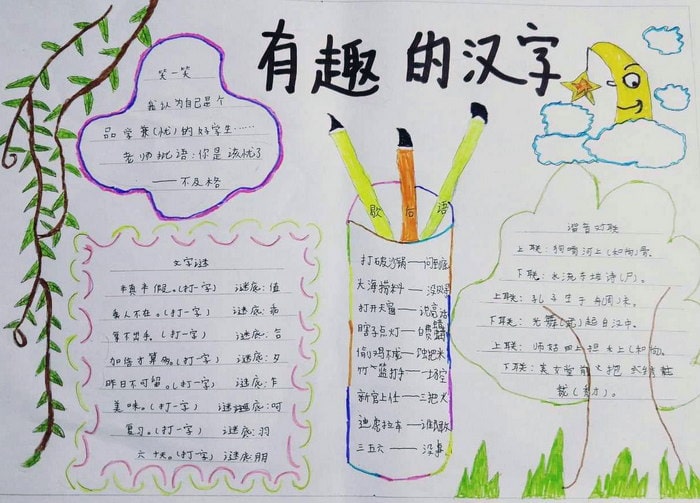 有趣的汉字
笑一笑
我认为自己是个
品学兼(忧)的好学生……
老师批语:你是该忧了
——不及格
文字谜
半真半假。(打一字) 谜底:值
(打一字) 谜底:
(打一字) 谜底:合
(打一字) 谜底:夕
昨日不可留。(打一字) 谜底:乍
美味。(打一字) 谜底:呵
复习。(打一字) 谜底:羽
六十天。(打一字) 谜底:朋
歇后语
打破沙锅——问到底
大海捞针——没
打开天窗——说亮话
瞎子点灯——白费
偷鸡不成——蚀把米
竹篮打水——场空
新官上任——三把火
迪虎拉车——谁敢
三五六——没事
谐音对联
上联:狗啃河上(和尚)骨
下联:水流东坡诗(尸)。
上联:孔子生于舟周末。
下联:光舞(武)起自汉中。
上联:师姑田上担禾上(和尚)
下联:美女堂前抱绣
裁(秀才)。